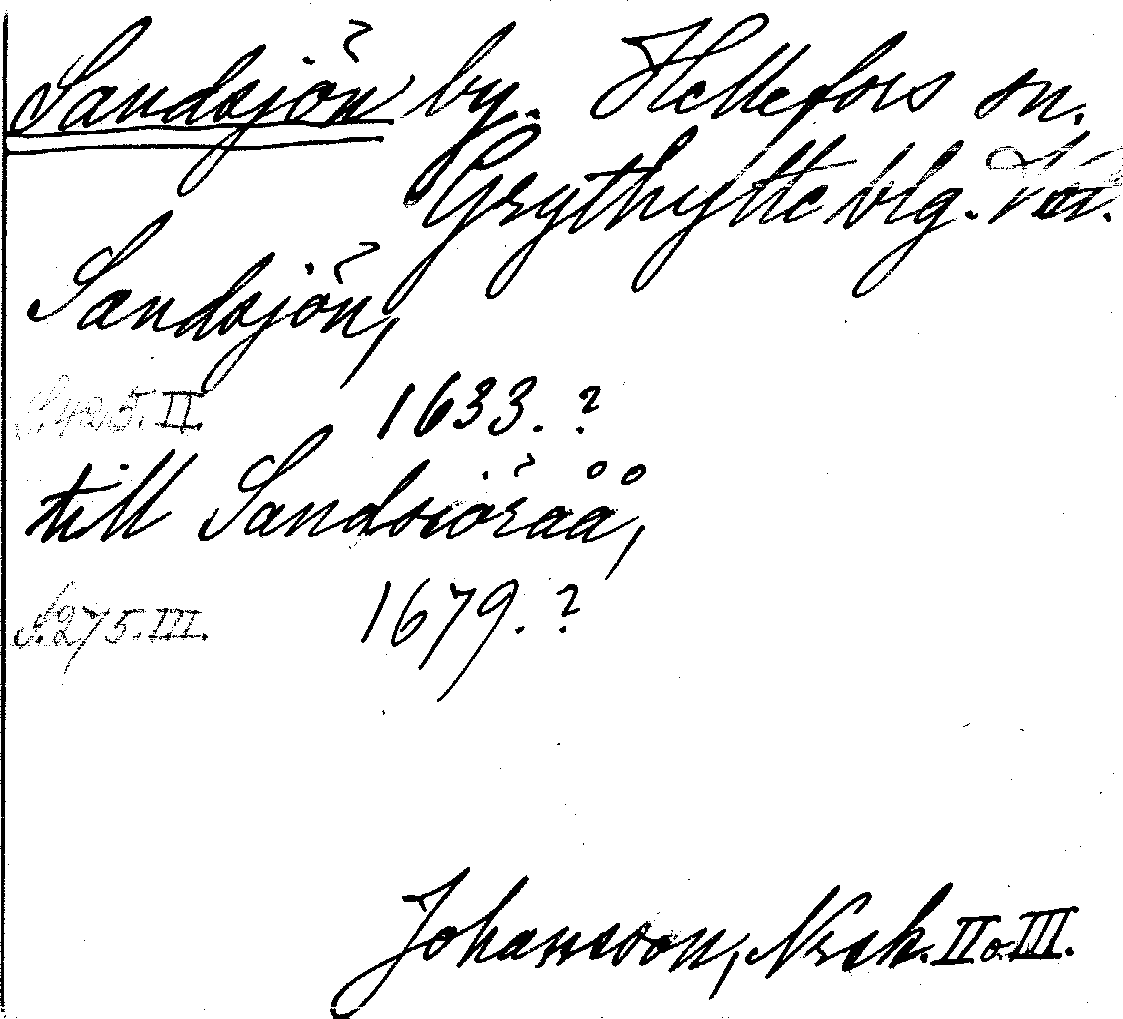 Sandsjön by. Hellefors sn.
Grythytte blg.
Sandsjön,
S. 425. II. 1633. ?
till Sandsiöråå,
S. 275. III. 1679. ?
Johansson, Nrsk. II o. III.